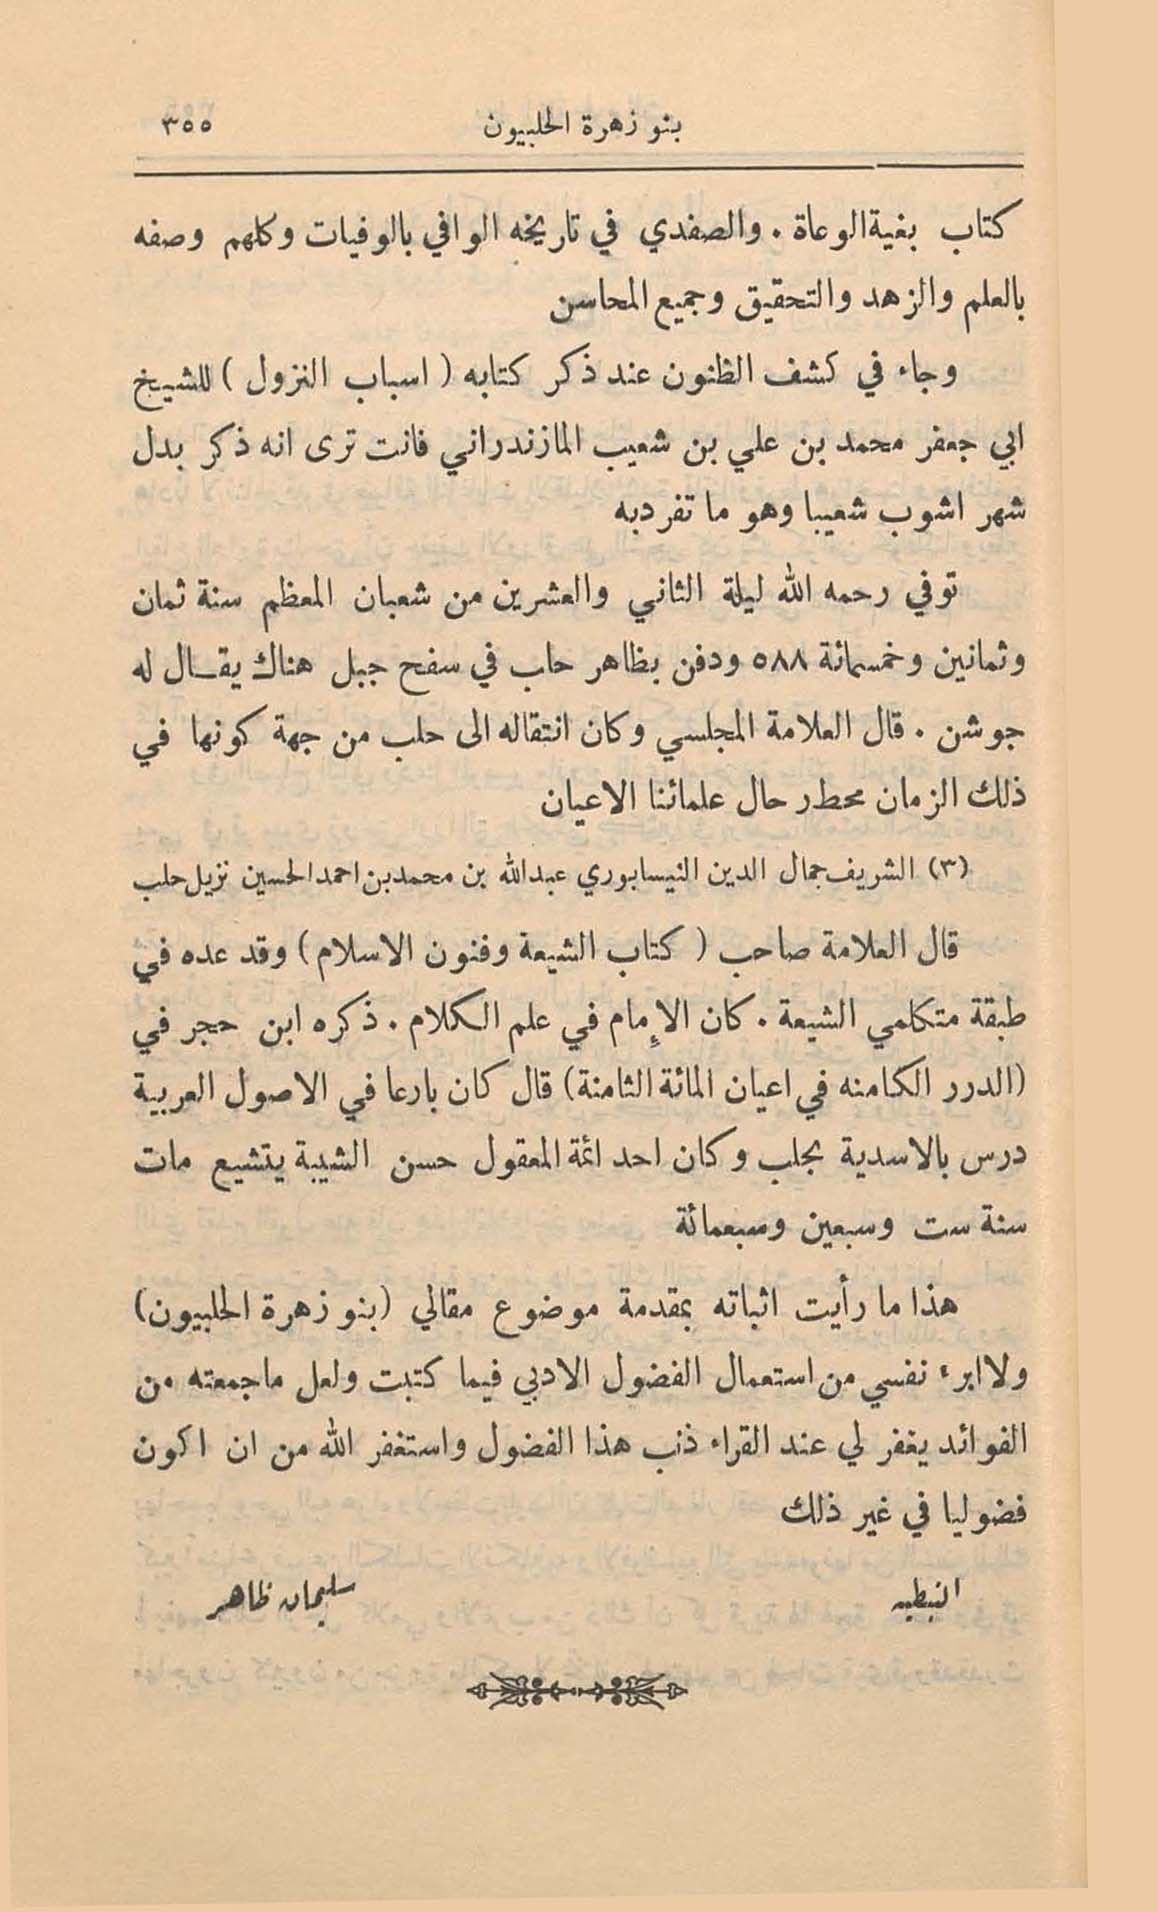 بنو زهرة الحلبيون
٣٥٥
كتاب بغية الوعاة . والصفدي في تاريخه الوافي بالوفيات وكلهم وصفه
بالعلم والزهد والتحقيق وجميع المحاسن
وجاء في كشف الظنون عند ذكر كتابه ( اسباب النزول ) للشيخ
ابي جعفر محمد بن علي بن شعيب المازندراني فانت ترى انه ذكر بدل
شهر اشوب شعيبا وهو ما تفرد به
توفي رحمه الله ليلة الثاني والعشرين من شعبان المعظم سنة ثمان
وثمانين وخمسمائة ٥٨٨ ودفن بظاهر حاب في سفح جبل هناك يقال له
جوشن . قال العلامة المجلسي وكان انتقاله الى حلب من جهة كونها في
ذلك الزمان محط رحال علمائنا الاعيان
(٣) الشريف جمال الدين النيسابوري عبدالله بن محمد بن احمد الحسين نزيل حلب
قال العلامة صاحب ( كتاب الشيعة وفنون الاسلام ) وقد عده في
طبقة متكلمي الشيعة . كان الإمام في علم الكلام . ذكره ابن حجر في
(الدرر الكامنه في اعيان المائة الثامنة) قال كان بارعا في الاصول العربية
درس بالاسدية بحلب وكان احد ائمة المعقول حسن الشيبة يتشيع مات
سنة ست وسبعين وسبعمائة
هذا ما رأيت اثباته بمقدمة موضوع مقالي (بنو زهرة الحلبيون)
ولا ابرء نفسي من استعمال الفضول الادبي فيما كتبت ولعل ما جمعته من
الفوائد يغفر لي عند القراء ذنب هذا الفضول واستغفر الله من ان اكون
فضوليا في غير ذلك
النبطيه
سليمان ظاهر